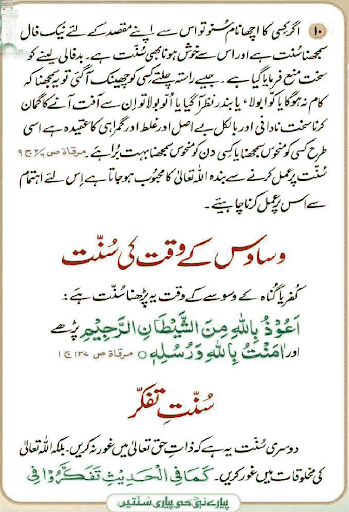 ۱۰ اگر کسی کا اچھا نام سنو تو اس سے اپنے مقصد کے لئے نیک فال
سمجھنا سُنّت ہے اور اس سے خوش ہونا بھی سُنّت ہے۔ بدفالی لینے کو
سخت منع فرمایا گیا ہے۔ جیسے راستہ چلتے کسی کو چھینک آگئی تو یہ سمجھنا کہ
کام نہ ہوگا یا کوّا بولا، یا بندر نظر آگیا یا اُلّو بولا تو ان سے آفت آنے کا گمان
کرنا سخت نادانی اور بالکل بے اصل اور غلط اور گمراہی کا عقیدہ ہے اسی
طرح کسی کو منحوس سمجھنا یا کسی دن کو منحوس سمجھنا بہت بُرا ہے۔ مرقاۃ ص ج ۹
سُنّت پر عمل کرنے سے بندہ اللہ تعالیٰ کا محبوب ہوجاتا ہے اس لئے اہتمام
سے اس پر عمل کرنا چاہیئے۔
وساوس کے وقت کی سُنّت
کفر یا گناہ کے وسوسے کے وقت یہ پڑھنا سُنّت ہے:
اَعُوْذُ بِاللّٰهِ مِنَ الشَّيْطَانِ الرَّجِيْمِ پڑھے
اور اٰمَنْتُ بِاللّٰهِ وَرُسُلِهٖ ○ مرقاۃ ص ۱۳۷ ج ۱
سُنّتِ تفکّر
دوسری سُنّت یہ ہے کہ ذاتِ حق تعالیٰ میں غور نہ کریں۔ بلکہ اللہ تعالیٰ
کی مخلوقات میں غور کریں۔ كَمَا فِي الْحَدِيْثِ تَفَكَّرُوْا فِي
پیارے نبی کی پیاری سنتیں